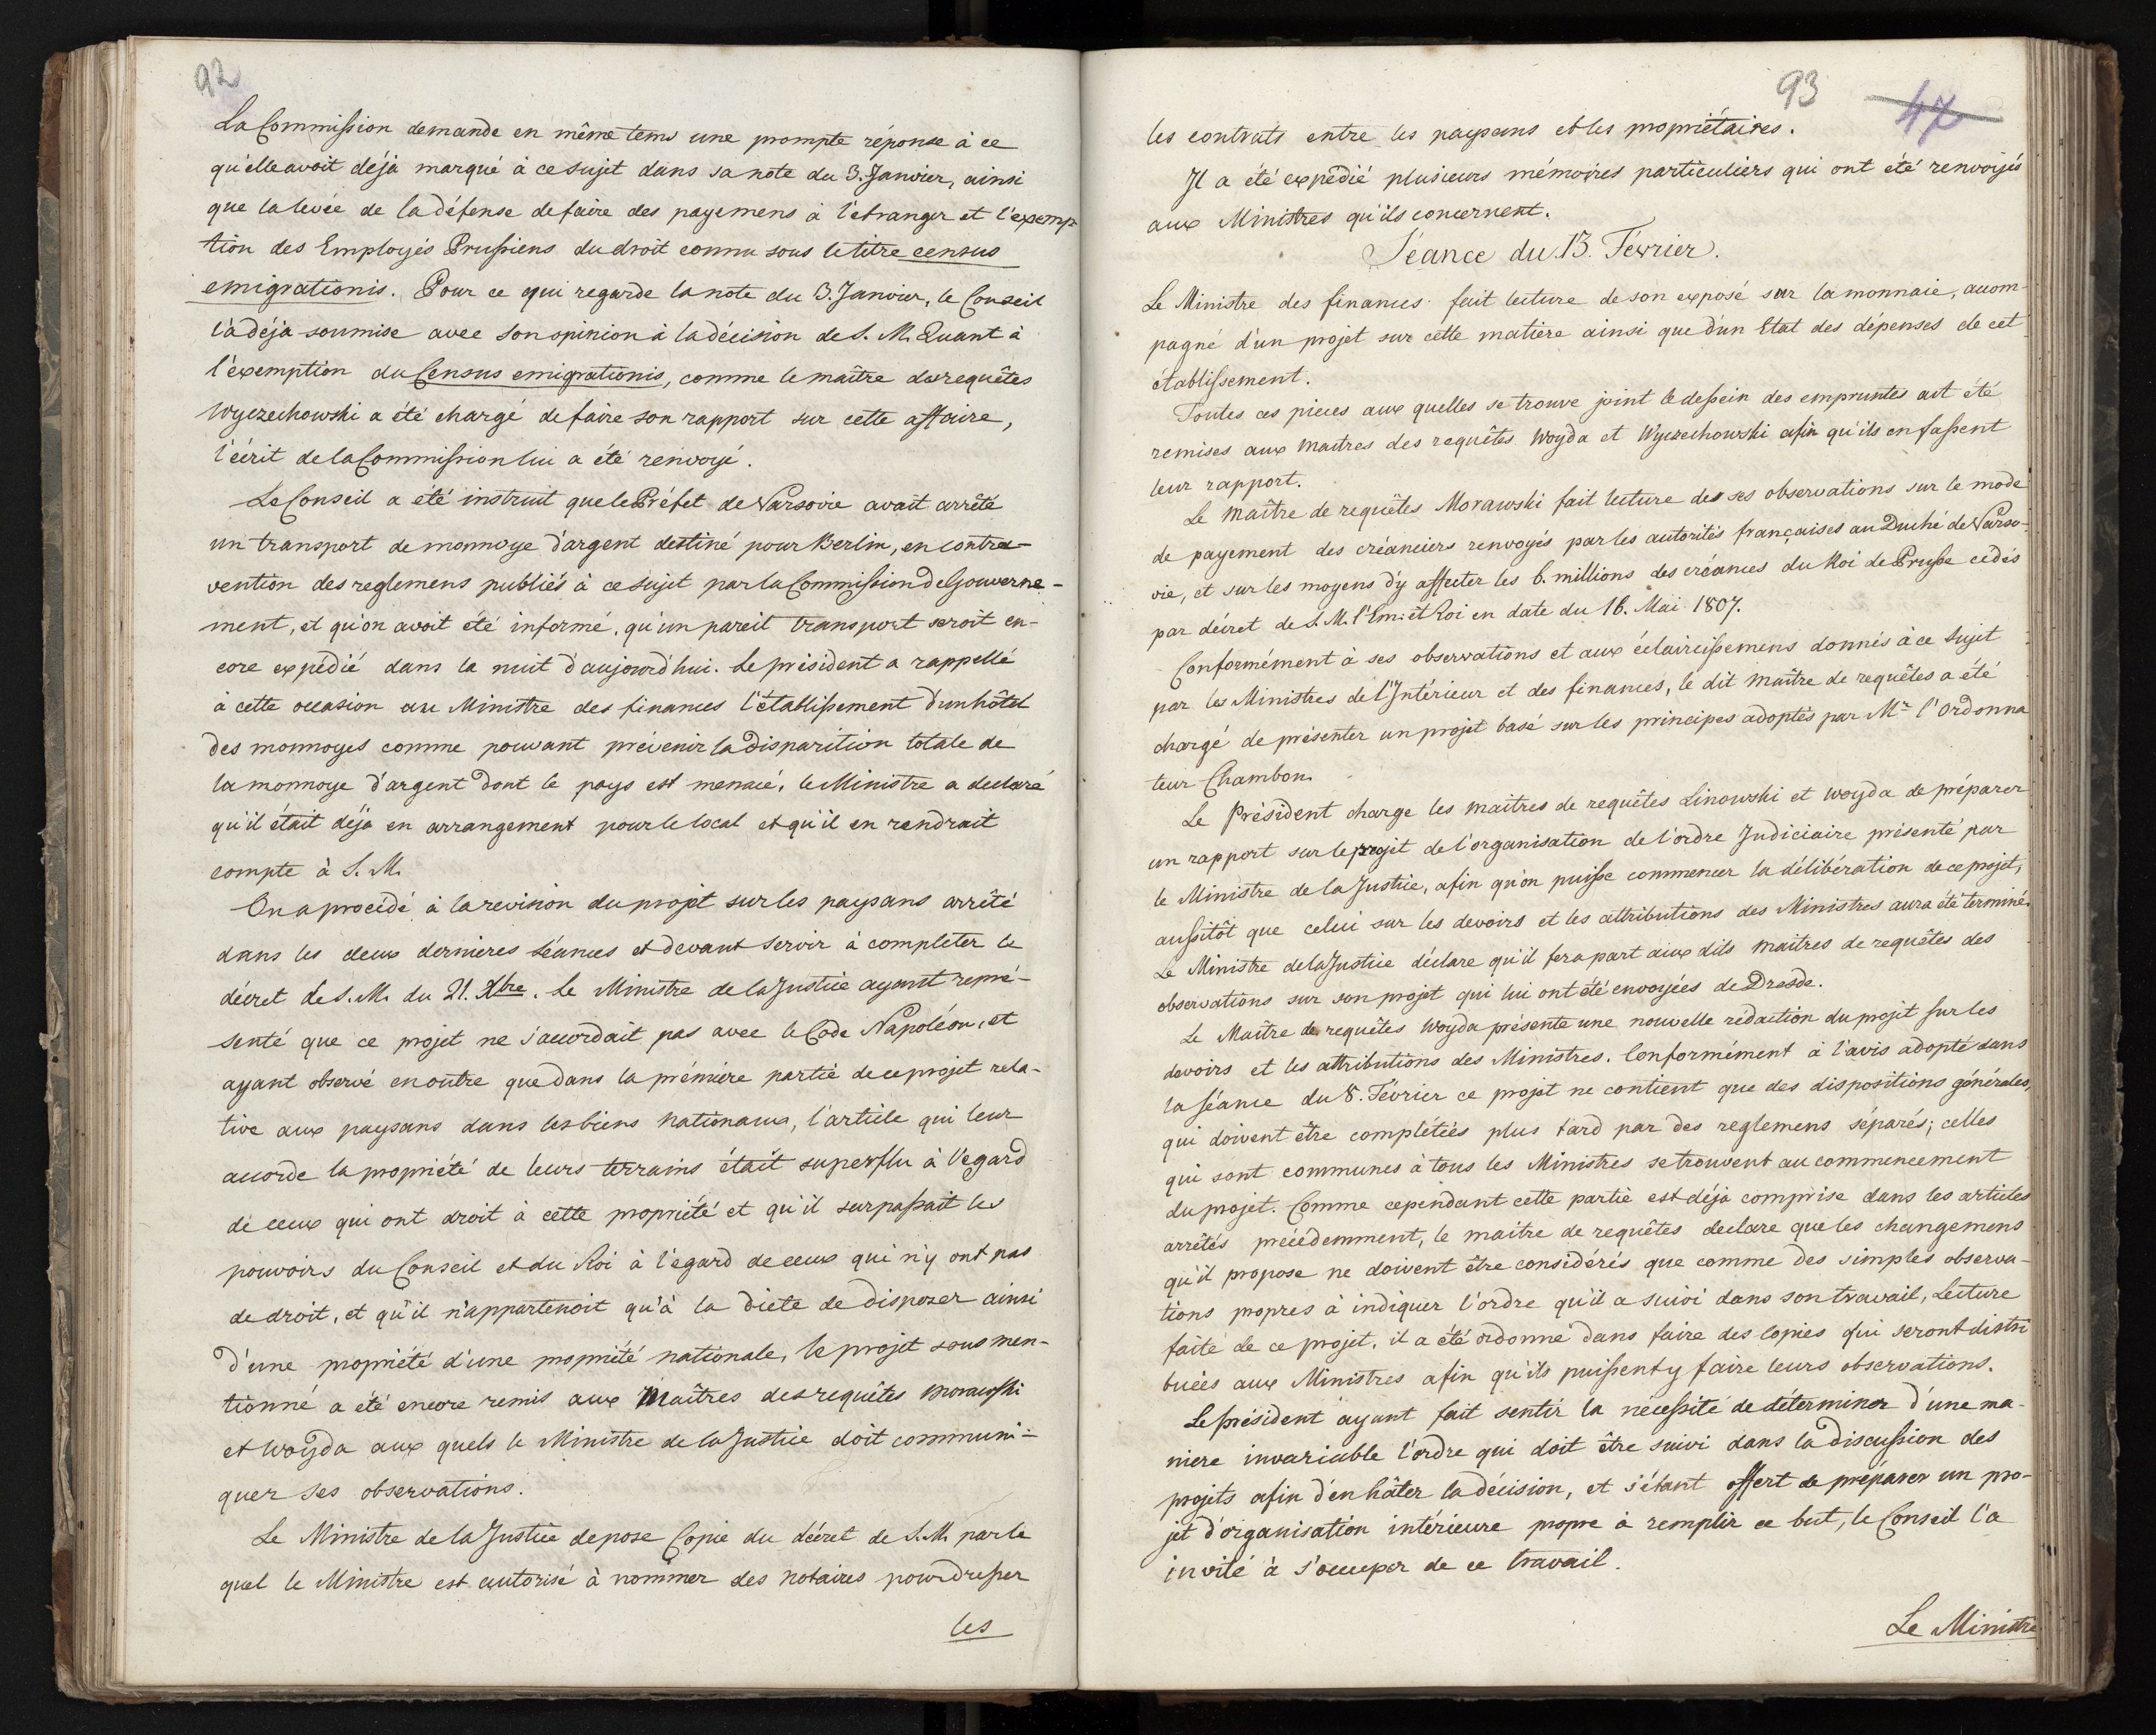 92
La Commission demande en même tems une prompte réponse à ce
qu'elle avoit déjà marqué à ce sujet dans sa note du 3. Janvier, ainsi
que la levée de la défense de faire des payemens à l'etranger et l'exemp-
tion des Employés Prussiens du droit connu sous le titre census
emigrationis. Pour ce qui regarde la note du 3. Janvier, le Conseil
l'a déja soumise avec son opinion à la décision de S. M. Quant à
l'exemption du Census emigrationis, comme le maître des requêtes
Wyczechowski a été chargé de faire son rapport sur cette affaire,
l'écrit de la Commission lui a été renvoyé.
Le Conseil a été instruit que le Préfet de Varsovie avait arrêté
un transport de monnoye d'argent destiné pour Berlin, en contra-
vention des reglemens publiés à ce sujet par la Commission de Gouverne-
ment, et qu'on avoit été informé, qu'un pareil transport seroit en-
core expédié dans la nuit d'aujourd'hui. Le président a rappellé
à cette occasion au Ministre des finances l'établissement d'un hôtel
des monnoyes comme pouvant prévenir la disparition totale de
la monnoye d'argent dont le pays est menacé. le Ministre a declaré
qu'il était déja en arrangement pour le local et qu'il en rendrait
compte à S. M.
On a procédé à la revision du projet sur les paysans arrêté
dans les deux dernieres séances et devant servir à completer le
décret de S. M. du 21. Xbre. Le Ministre de la Justice ayant repré-
senté que ce projet ne s'accordait pas avec le Code Napoléon, et
ayant observé en outre que dans la prémière partie de ce projet rela-
tive aux paysans dans les biens nationaux, l'article qui leur
accorde la propriété de leurs terrains était superflu à l'egard
de ceux qui ont droit à cette propriété et qu'il surpassait les
pouvoirs du Conseil et du Roi à l'égard de ceux qui n'y ont pas
de droit, et qu'il n'appartenoit qu'à la diete de disposer ainsi
d'une propriété d'une propriété nationale, le projet sous men-
tionné a été encore remis aux Maîtres des requêtes Morawski
et Woyda aux quels le Ministre de la Justice doit communi-
quer ses observations.
Le Ministre de la Justice depose Copie du décret de S. M. par le
quel le Ministre est autorisé à nommer des notaires pour dresser
les
93
47
les contrats entre les paysans et les propriétaires.
Il a été expédié plusieurs mémoires particuliers qui ont été renvoyés
aux Ministres qu'ils concernent.
Séance du 13. Février.
Le Ministre des finances fait lecture de son exposé sur la monnaie, accom-
pagné d'un projet sur cette matiere ainsi que d'un Etat des dépenses de cet
établissement.
Toutes ces pieces aux quelles se trouve joint le dessein des empruntes ont été
remises aux maitres des requêtes Woyda et Wyczechowski afin qu'ils en fassent
leur rapport.
Le Maître de requêtes Morawski fait lecture de ses observations sur le mode
de payement des créanciers renvoyés par les autorités françaises au Duché de Varso-
vie, et sur les moyens d'y affecter les 6. millions des créances du Roi de Prusse cedés
par décret de S. M. l'Em: et Roi en date du 16. Mai 1807.
Conformément à ses observations et aux éclaircissemens donnés à ce sujet
par les Ministres de l'Intérieur et des finances, le dit Maître de requêtes a été
chargé de présenter un projet basé sur les principes adoptés par Mr l'Ordonna
teur Chambon.
Le Président charge les maîtres de requêtes Linowski et Woyda de préparer
un rapport sur le projet de l'organisation de l'ordre Judiciaire présenté par
le Ministre de la Justice, afin qu'on puisse commencer la délibération de ce projet,
aussitôt que celui sur les devoirs et les attributions des Ministres aura été terminé.
Le Ministre de la Justice déclare qu'il fera part aux dits maitres de requêtes des
observations sur son projet qui lui ont été envoyées de Dresde.
Le Maître de requêtes Woyda présente une nouvelle rédaction du projet sur les
devoirs et les attributions des Ministres. Conformément à l'avis adopté dans
la séance du 8. Février ce projet ne contient que des dispositions générales,
qui doivent être complétiés plus tard par des reglemens séparés; celles
qui sont communes à tous les Ministres se trouvent au commencement
du projet. Comme cependant cette partie est déjà comprise dans les articles
arrêtés précédemment, le maitre de requêtes declare que les changemens
qu'il propose ne doivent être considérés que comme des simples observa-
tions propres à indiquer l'ordre qu'il a suivi dans son travail, Lecture
faite de ce projet, il a été ordonné d'ans faire des copies qui seront distri
buées aux Ministres afin qu'ils puissent y faire leurs observations.
Le président ayant fait sentir la nécessité de déterminer d'une ma-
niere invariable l'ordre qui doit être suivi dans la discussion des
projets afin d'en hâter la décision, et s'étant offert de préparer un pro-
jet d'organisation intérieure propre à remplir ce but, le Conseil l'a
invité à s'occuper de ce travail.
Le Ministre